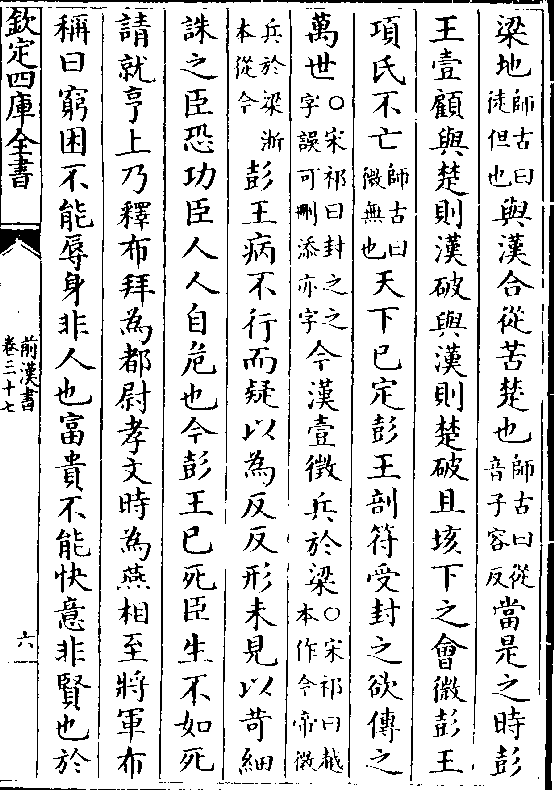 梁地師古曰徒但也與漢合從苦楚也師古曰從音子容反當是之時彭
王壹顧與楚則漢破與漢則楚破且垓下之會微彭王
項氏不亡師古曰微無也天下已定彭王剖符受封之欲傳之
萬世○宋祁曰封之之字誤可刪添亦字今漢壹徵兵於梁○宋祁曰越本作今帝徵
兵於梁浙本從今彭王病不行而疑以為反反形未見以苛細
誅之臣恐功臣人人自危也今彭王已死臣生不如死
請就亨上乃釋布拜為都尉孝文時為燕相至將軍布
稱曰窮困不能辱身非人也富貴不能快意非賢也於
欽定四庫全書
前漢書
卷三十七
六